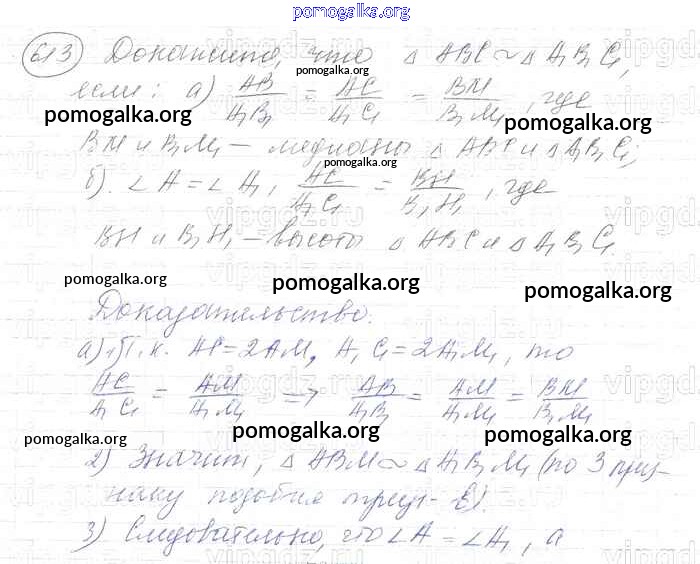 pomogalka.org
613 Докажите, что △ ABC ~ △ A₁B₁C₁,
pomogalka.org
если: а) AB/A₁B₁ = AC/A₁C₁ = BM/B₁M₁, где
pomogalka.org pomogalka.org
BM и B₁M₁ – медианы △ ABC и △ A₁B₁C₁;
pomogalka.org
б). ∠A = ∠A₁, AC/A₁C₁ = BH/B₁H₁, где
BH и B₁H₁ – высоты △ ABC и △ A₁B₁C₁.
pomogalka.org pomogalka.org pomogalka.org
Доказательство.
а) 1) Т.к. AC = 2AM, A₁C₁ = 2A₁M₁, то
AC/A₁C₁ = AM/A₁M₁ => AB/A₁B₁ = AM/A₁M₁ = BM/B₁M₁
pomogalka.org pomogalka.org pomogalka.org
2) Значит, △ ABM ~ △ A₁B₁M₁ (по 3 приз-
наку подобия треуг-в).
3) Следовательно, ∠A = ∠A₁, а